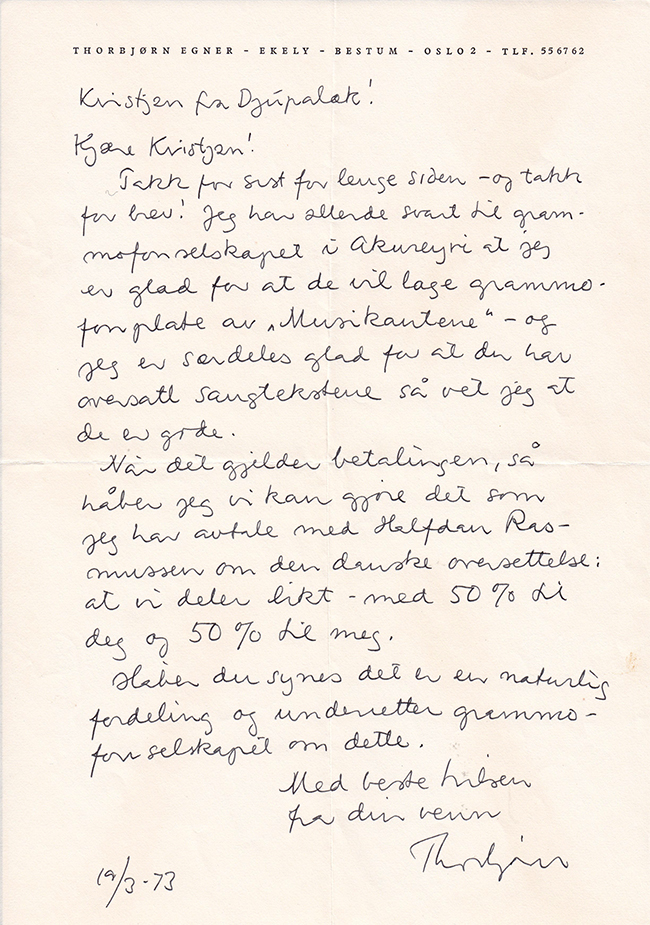 THORBJØRN EGNER - EKELY - BESTUM - OSLO 2 - TLF. 556762
Kristjan fra Djúpalæk!
Kjære Kristjan!
Takk for sist for lenge siden - og takk
for brev! Jeg har allerede svart til gram-
mofonselskapet i Akureyri at jeg
er glad for at de vil lage grammo-
fonplate av „Musikantene" - og
jeg er særdeles glad for at du har
oversatt sangtekstene så vet jeg at
de er gode.
Når det gjelder betalingen, så
håber jeg vi kan gjøre det som
jeg har avtale med Halfdan Ras-
mussen om den danske oversettelse:
at vi deler likt - med 50 % til
deg og 50 % til meg.
Håber du synes det er en naturlig
fordeling og underretter grammo-
fonselskapet om dette.
Med beste hilsen
fra din venn
Thorbjørn
19/3-73